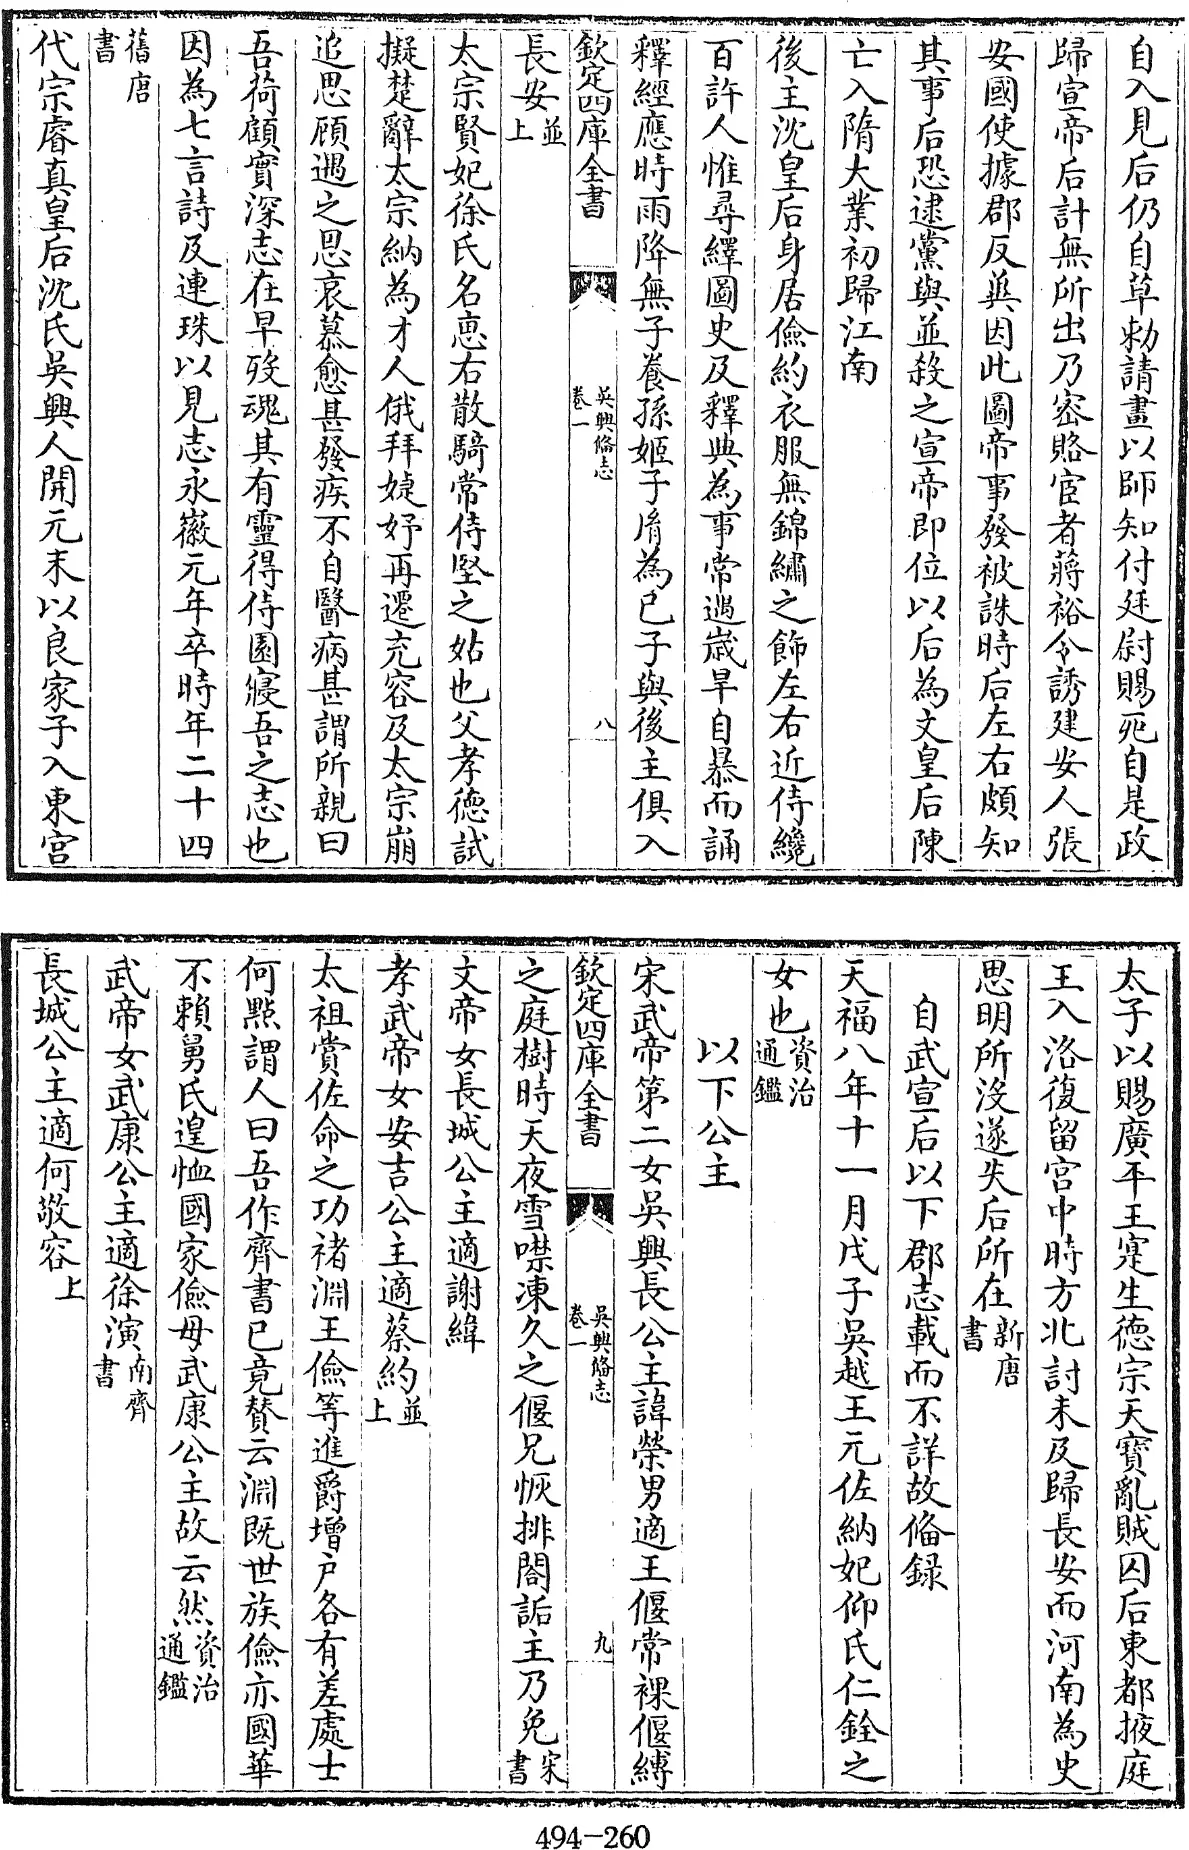 自入見后仍自草勅請畫以師知付廷尉賜死自是政
歸宣帝后計無所出乃密賂宦者蔣裕令誘建安人張
安國使據郡反兾因此圖帝事發被誅時后左右頗知
其事后恐逮黨與並殺之宣帝即位以后為文皇后陳
亡入隋大業初歸江南
後主沈皇后身居儉約衣服無錦繡之飾左右近侍纔
百許人惟尋繹圖史及釋典為事常遇歲旱自暴而誦
釋經應時雨降無子養孫姬子㣧為己子與後主俱入
欽定四庫全書
吳興備志
卷一
八
長安並上
太宗賢妃徐氏名惠右散騎常侍堅之姑也父孝德試
擬楚辭太宗納為才人俄拜婕妤再遷充容及太宗崩
追思顧遇之恩哀慕愈甚發疾不自醫病甚謂所親曰
吾荷顧實深志在早歿魂其有靈得侍園寢吾之志也
因為七言詩及連珠以見志永徽元年卒時年二十四
舊唐書
代宗睿真皇后沈氏吳興人開元末以良家子入東宮
太子以賜廣平王寔生德宗天寶亂賊囚后東都掖庭
王入洛復留宮中時方北討未及歸長安而河南為史
思明所沒遂失后所在新唐書
自武宣后以下郡志載而不詳故偹録
天福八年十一月戊子吳越王元佐納妃仰氏仁銓之
女也資治通鑑
以下公主
宋武帝第二女吳興長公主諱榮男適王偃常裸偃縛
欽定四庫全書
吳興備志
卷一
九
之庭樹時天夜雪噤凍久之偃兄恢排閤詬主乃免宋書
文帝女長城公主適謝緯
孝武帝女安吉公主適蔡約並上
太祖賞佐命之功褚淵王儉等進爵增戶各有差處士
何點謂人曰吾作齊書已竟贊云淵既世族儉亦國華
不賴舅氏遑恤國家儉母武康公主故云然資治通鑑
武帝女武康公主適徐演南齊書
長城公主適何敬容上
494-260